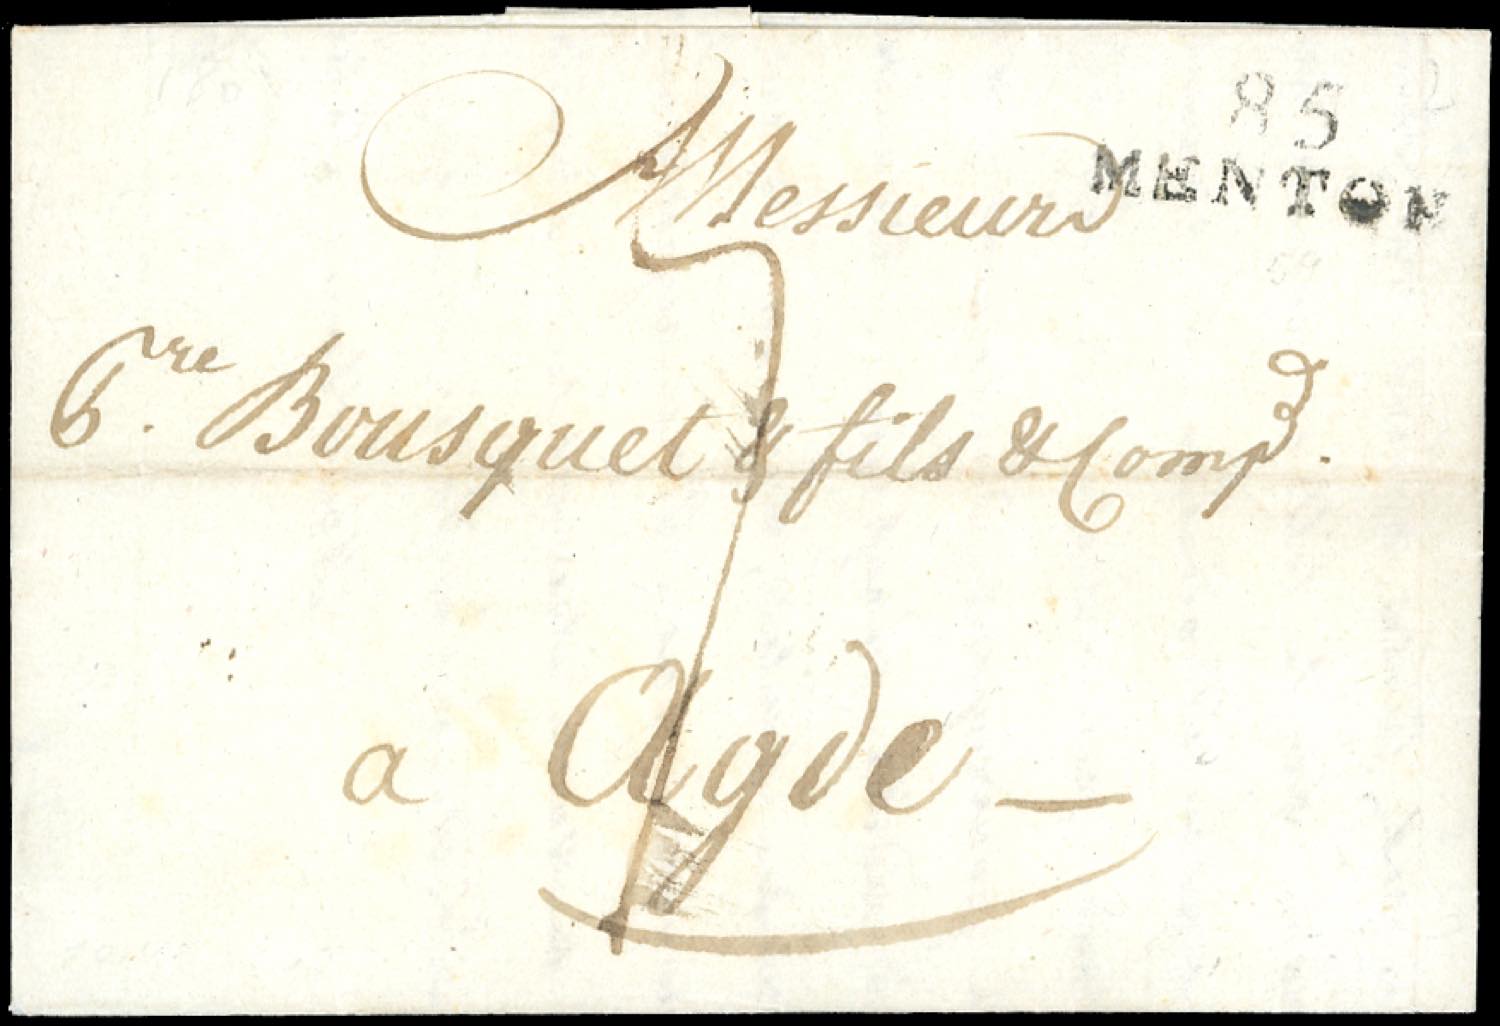 85
MENTON
Messieurs
Pre. Bousquet & fils & Comp.
7
a Agde